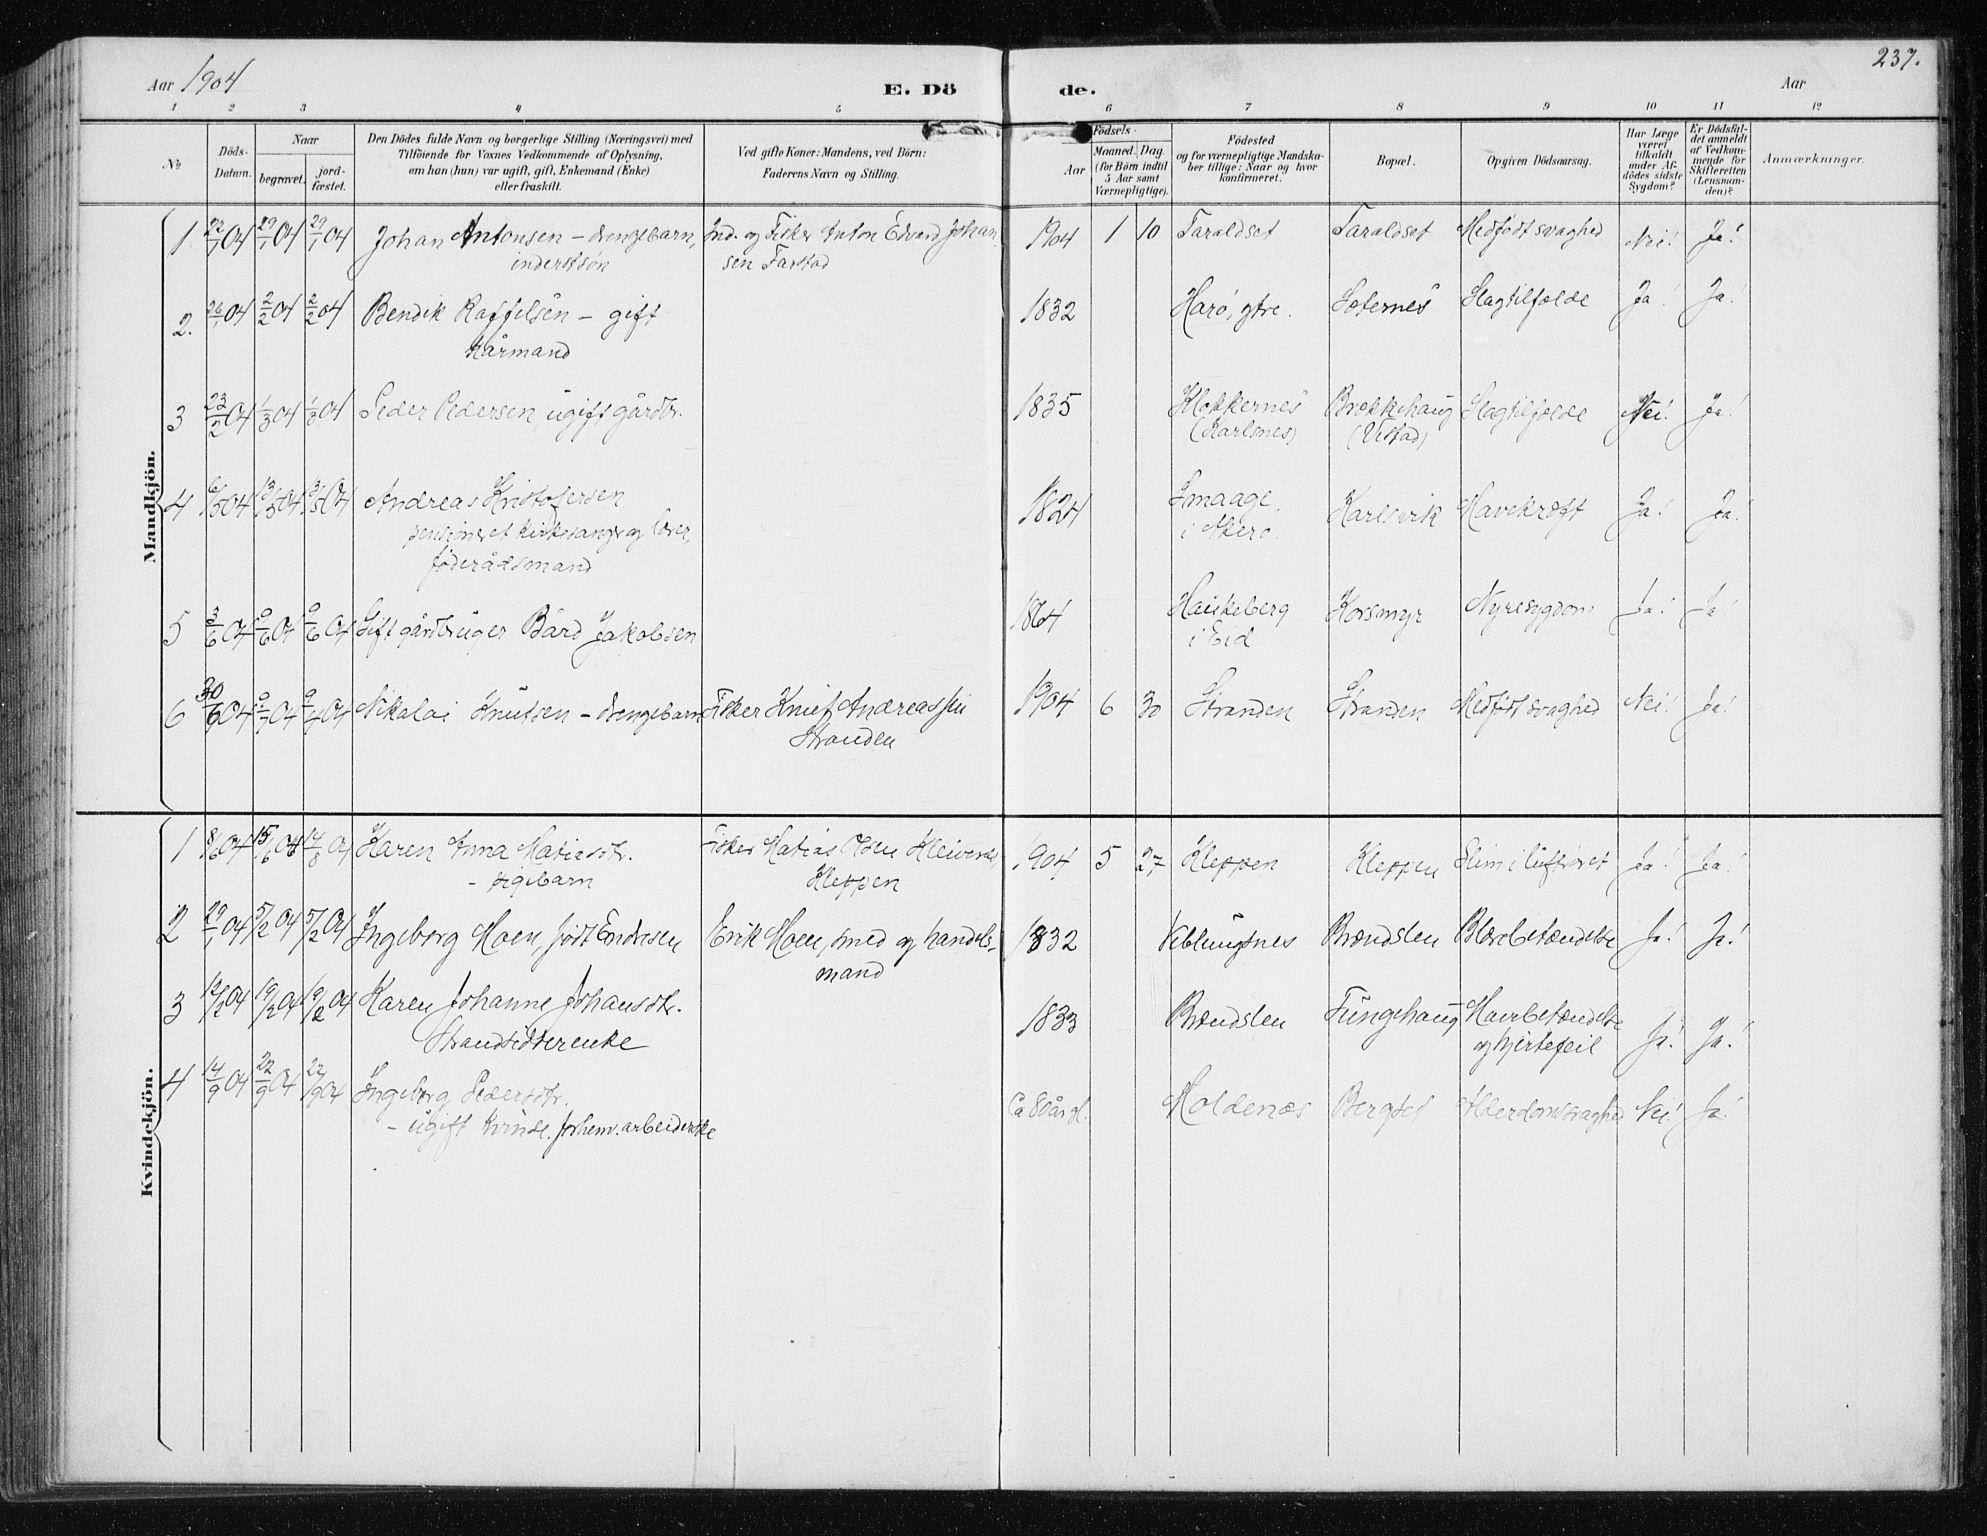 237.
Aar 1904 E. Dö de. Aar
1 2 3 4 5 6 7 8 9 10 11 12
No
Döds-Datum.
Naar
begravet.
jord-fæstet.
Den Dödes fulde Navn og borgerlige Stilling (Næringsvei) med
Tilföiende for Voxnes Vedkommende af Oplysning,
om han (hun) var ugift, gift, Enkemand (Enke)
eller fraskilt.
Ved gifte Koner: Mandens, ved Börn:
Faderens Navn og Stilling.
Födsels-
Aar
Maaned. Dag.
(for Börn indtil
5 Aar samt
Værnepligtige).
Födested
og for værnepligtige Mandska-
ber tillige: Naar og hvor
konfirmeret.
Bopæl.
Opgiven Dödsaarsag.
Har Læge
været
tilkaldt
under Af-
dödes sidste
Sygdom?
Er Dödsfal-
det anmeldt
af Vedkom-
mende for
Skifteretten
(Lensman-
den)?
Anmærkninger.
Mandkjön.
1. 22/1 04 29/1 04 29/1 04 Johan Antonsen – drengebarn, Ind. og Fisker Anton Edvard Johan- 1904 1 10 Taraldset Taraldset Medfødt svaghed Nei! Ja!
inderstsøn sen Farstad
2. 26/1 04 2/2 04 2/2 04 Bendik Raffelsen – gift 1832 Harø, ytre. Sæternes Slagtilfælde Ja! Ja.
kårmand
3 23/2 04 1/3 04 1/3 04 Peder Pedersen, ugift gårdbr. 1835 Klokkernes Brekkehaug Slagtilfælde Nei! Ja!
(Karlsnes) (Vestad)
4 6/5 04 13/5 04 13/5 04 Andreas Kristofersen 1824 Smaage, Karlsvik Mavekræft Ja! Ja!
pensioneret kirkesanger og lærer, i Akerø.
føderådsmand
5 3/6 04 9/6 04 9/6 04 Gift gårdbruger Bård Jakobsen 1864 Haukeberg Korsmyr Nyresygdom Ja! Ja!
i Eid
6 30/6 04 9/7 04 9/7 04 Nikolai Knutsen – drengebarn Fisker Knut Andreassen 1904 6 30 Stranden Stranden Medfødt svaghed Nei! Ja!
Stranden
Kvindekjön.
1 8/6 04 15/6 04 14/8 04 Karen Anna Matiasdtr. Fisker Matias Olsen Kleivenes 1904 5 27 Kleppen Kleppen Slim i luftrøret Ja! Ja!
– pigebarn Kleppen
2 29/1 04 5/2 04 5/2 04 Ingeborg Moen, født Endresen Erik Moen, smed og handels- 1832 Veblungsnes Brendslen Blærebetændelse Ja! Ja!
mand
3 12/2 04 19/2 04 19/2 04 Karen Johanne Johansdtr. 1833 Brendslen Tungehaug Mavebetændelse Ja! Ja!
Strandsidderenke og hjertefeil
4 14/9 04 22/9 04 22/9 04 Ingeborg Pedersdtr. Ca 80 år gl. Moldenæs Bergset Alderdomssvaghed Nei! Ja!
– ugift kvinde. forhenv. arbeiderske